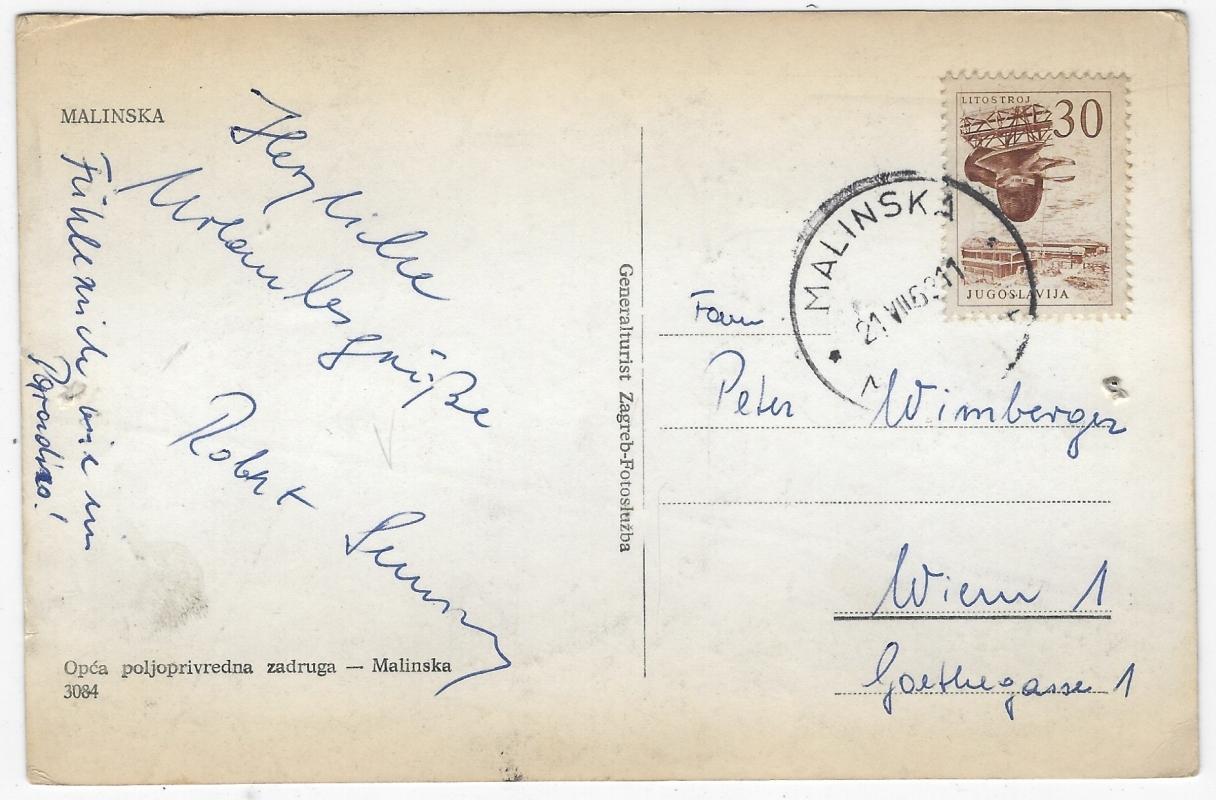 MALINSKA
Herzliche
Urlaubsgrüße
Robert
Fühle mich wie im
Paradies!
Opća poljoprivredna zadruga — Malinska
3084
Generalturist Zagreb-Fotoslužba
LITOSTROJ 30
JUGOSLAVIJA
MALINSKA
21 VII 63 11
Peter Wimberger
Wien 1
Goethegasse 1